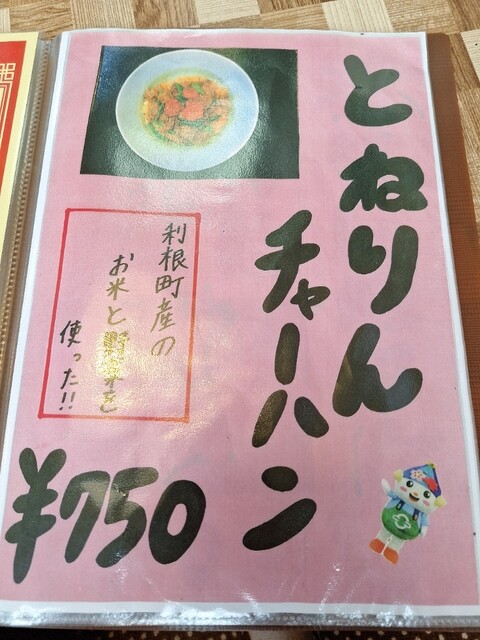 とねりん
チャーハン
利根町産の
お米と野菜を
使った!!
¥750